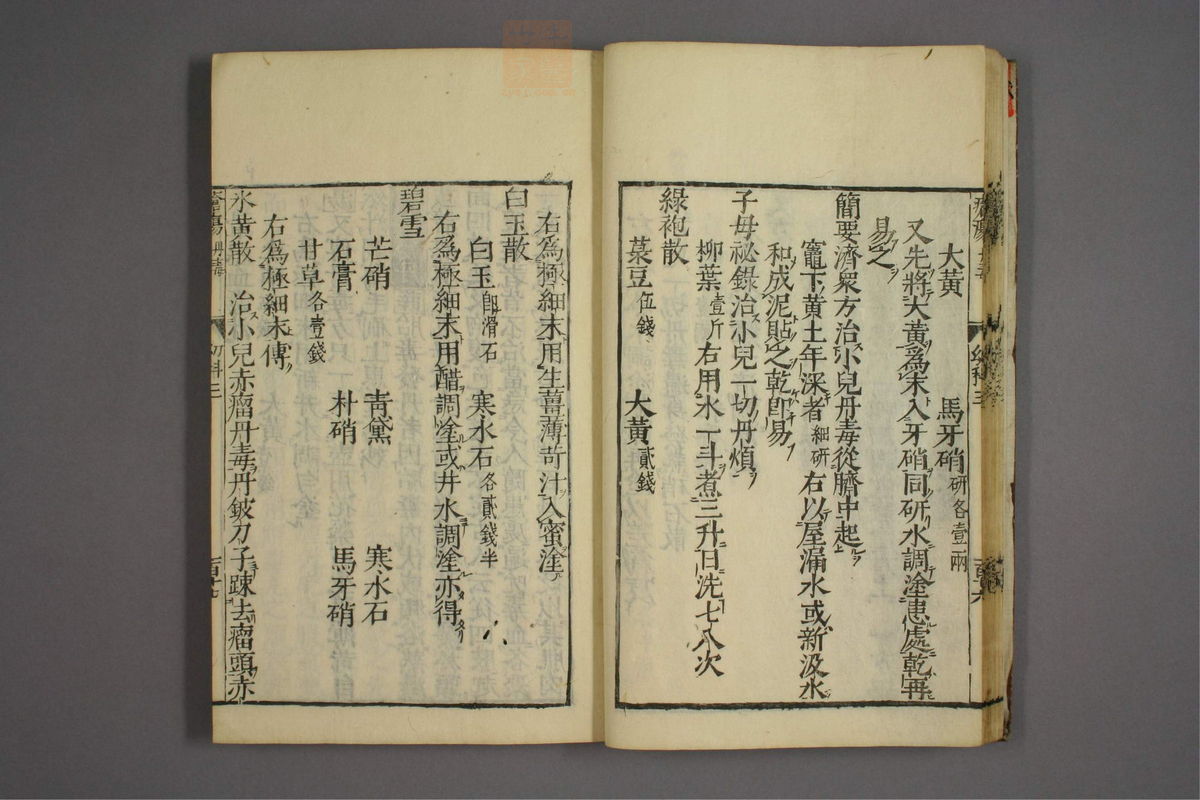 大黃 馬牙硝研各壹兩
又先將大黃爲末入牙硝同研水調塗患處乾再
易之
簡要濟衆方治小兒丹毒從臍中起
竈下黃土年深者細研右以屋漏水或新汲水
和成泥貼之乾卽易
子母祕錄治小兒一切丹煩
柳葉壹斤右用水一斗煮三升日洗七八次
綠袍散
菉豆伍錢 大黃貳錢
右爲極細末用生薑薄荷汁入蜜塗
白玉散
白玉卽滑石 寒水石各貳錢半
右爲極細末用醋調塗或井水調塗亦得
碧雪
芒硝 靑黛 寒水石
石膏 朴硝 馬牙硝
甘草各壹錢
右爲極細末傅
氷黃散 治小兒赤瘤丹毒丹鈹刀子踈去瘤頭赤
瘡瘍 丹毒 幼科三